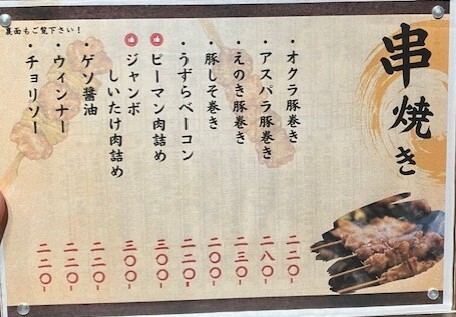 串焼き
・オクラ豚巻き 二二〇-
・アスパラ豚巻き 二八〇-
・えのき豚巻き 二三〇-
・豚しそ巻き 二〇〇-
・うずらベーコン 二二〇-
ピーマン肉詰め 三〇〇-
ジャンボ
しいたけ肉詰め 三〇〇-
・ゲソ醤油 二二〇-
・ウィンナー 二二〇-
・チョリソー 二二〇-
裏面もご覧下さい！